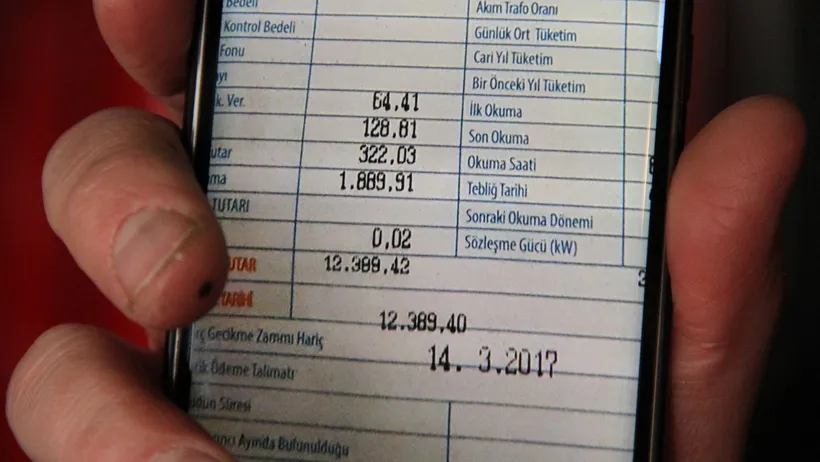 Bedeli
Akım Trafo Oranı
Kontrol Bedeli
Günlük Ort Tüketim
Fonu
Cari Yıl Tüketim
Bir Önceki Yıl Tüketim
k. Ver. 64,41 İlk Okuma
128,81 Son Okuma
utar 322,03 Okuma Saati
ma 1.889,91 Tebliğ Tarihi
TUTARI Sonraki Okuma Dönemi
0,02 Sözleşme Gücü (kW)
UTAR 12.389,42
TARİHİ 12.389,40
Gecikme Zammı Hariç 14. 3.2017
Ödeme Talimatı
Süresi
Ayında Bulunulduğu